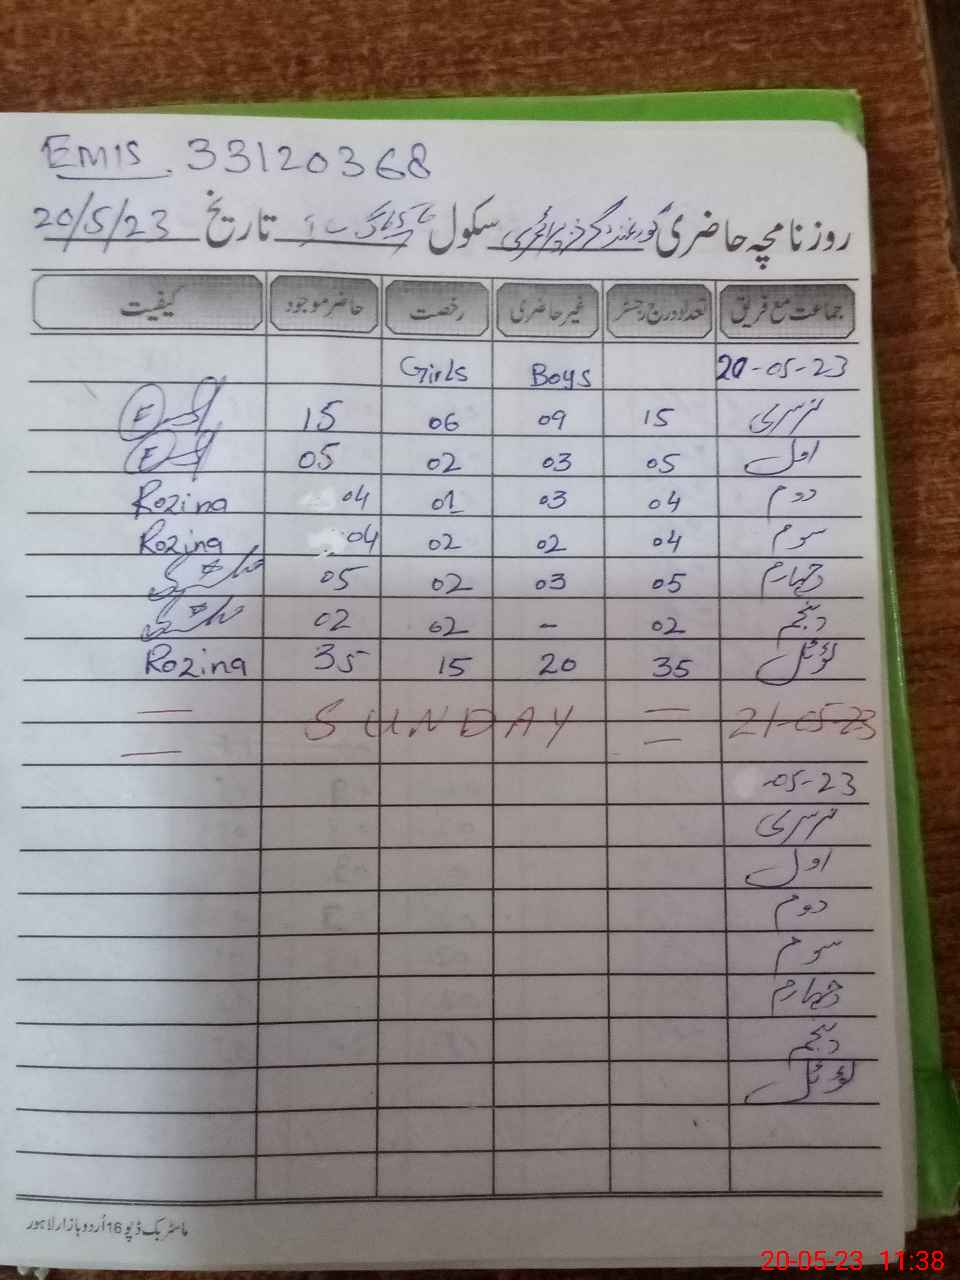 EMIS 33120368
روزنامچہ حاضری گورنمنٹ گرلز پرائمری سکول تاریخ 20/5/23
جماعت مع فریق تعداد درج رجسٹر غیر حاضری رخصت حاضر موجود کیفیت
20-05-23 Boys Girls
نرسری 15 09 06 15
اول 05 03 02 05
دوم 04 03 01 04 Rozina
سوم 04 02 02 04 Rozina
چہارم 05 03 02 05
پنجم 02 - 02 02
ٹوٹل 35 20 15 35 Rozina
21-05-23 = SUNDAY =
-05-23
نرسری
اول
دوم
سوم
چہارم
پنجم
ٹوٹل
ماسٹر بک ڈپو 16 اُردو بازار لاہور
20-05-23 11:38